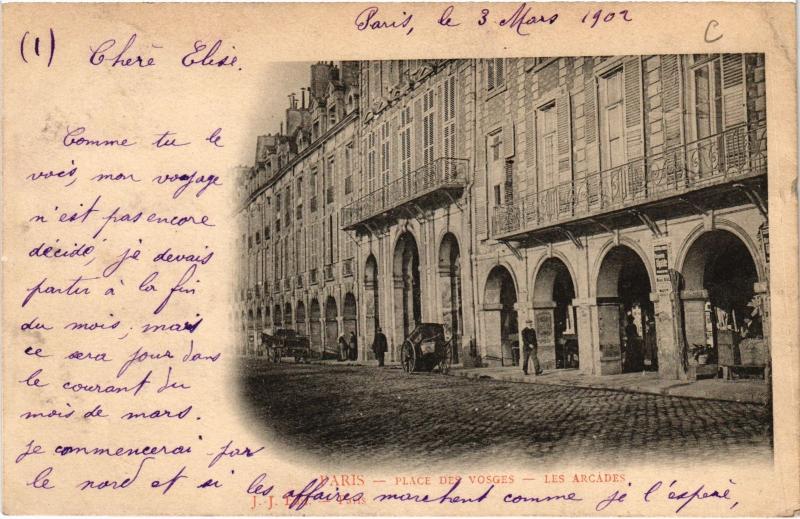 Paris, le 3 Mars 1902
C
(1) Cherè Elise.
Comme tu le
vois, mon voyage
n'est pas encore
décidé, je devais
partir à la fin
du mois, mais
ce sera pour dans
le courant du
mois de mars.
je commencerai par
le nord et si les affaires marchent comme je l'espère,
PARIS — PLACE DES VOSGES — LES ARCADES
J.-J. Paris